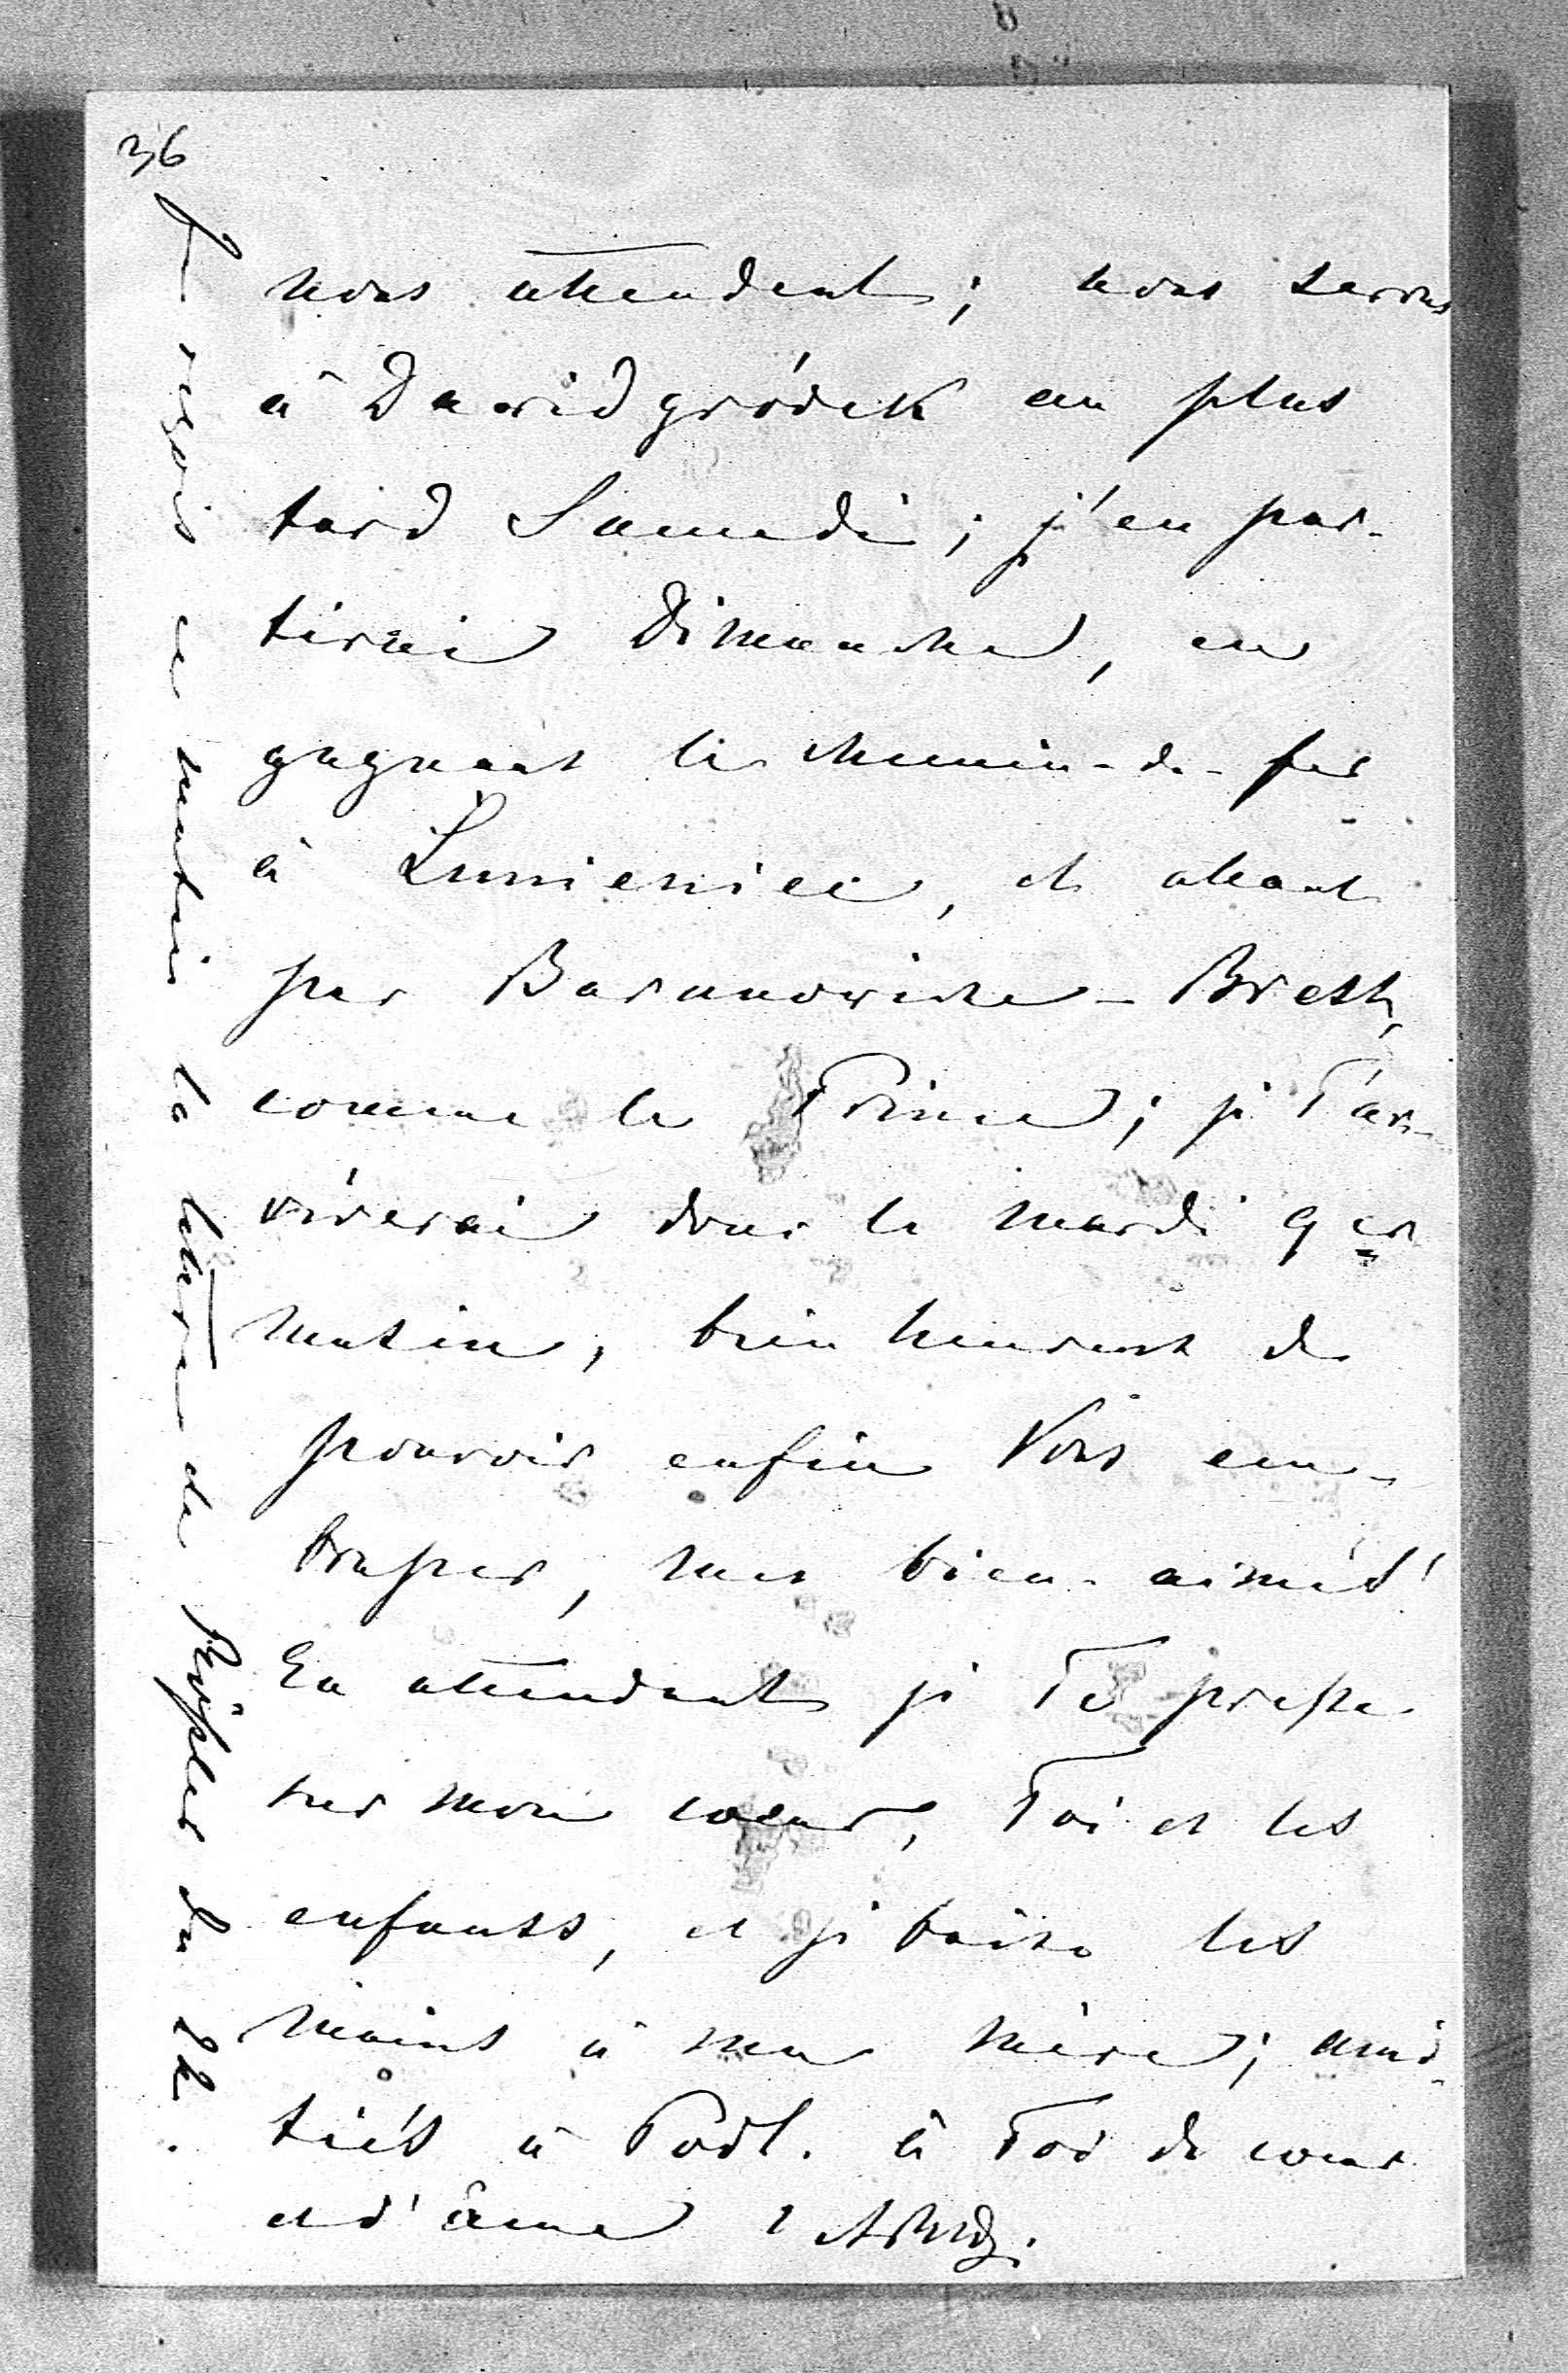 36
nous attendent; nous serons
à Dawidgródek au plus
tard Samedi; j'en par-
tirai Dimanche, en
gagnant le chemin-de-fer
à Łunieniec, et allant
par Baranowiche-Brest,
comme le Prince; je t'ar-
riverai donc le mardi 9 ct.
matin, bien heureux de
pouvoir enfin Vous em-
brasser, mes bien-aimés!
En attendant je Te presse
sur mon coeur, Toi et les
enfants, et je baise les
mains à ma mère; ami-
tiés à Podl. à Toi de coeur
et d'âme
Je reçois ce matin la lettre de du 24.